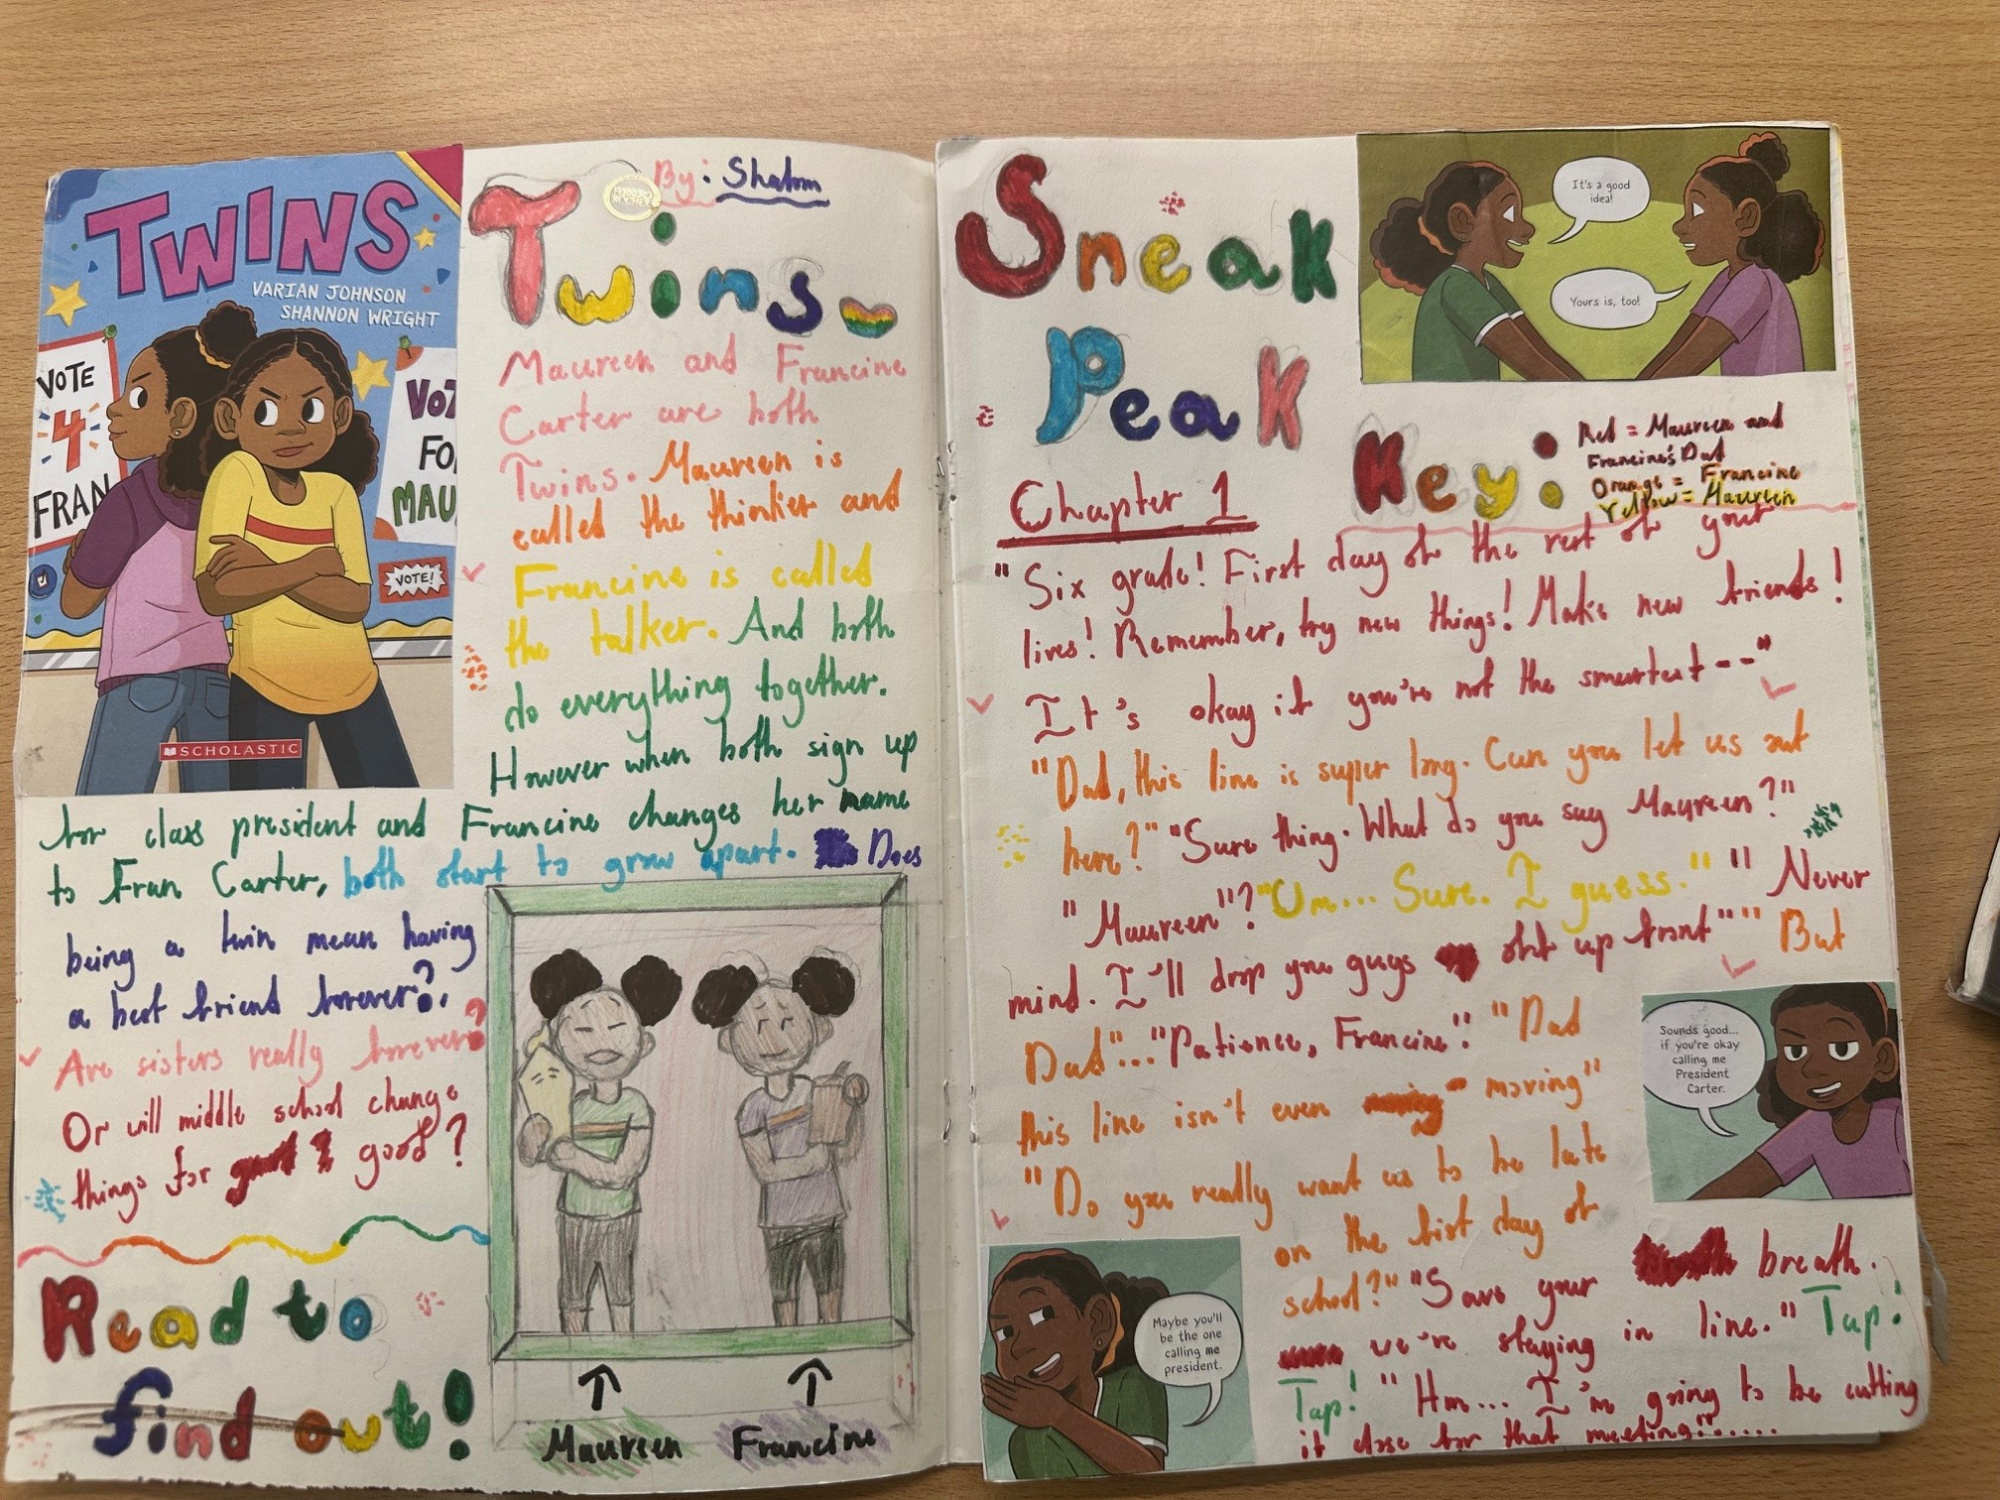 TWINS
VARIAN JOHNSON
SHANNON WRIGHT
VOTE
4
FRAN
VOT
FO
MAU
VOTE!
SCHOLASTIC
By: Shalom
Twins
Maureen and Francine
Carter are both
Twins. Maureen is
called the thinker and
Francine is called
the talker. And both
do everything together.
However when both sign up
for class president and Francine changes her name
to Fran Carter, both start to grow apart. Does
being a twin mean having
a best friend forever?
Are sisters really forever?
Or will middle school change
things for good?
Read to
find out!
Maureen Francine
Sneak
Peak
It's a good
idea!
Yours is, too!
Key:
Red = Maureen and
Francine's Dad
Orange = Francine
Yellow = Maureen
Chapter 1
"Six grade! First day of the rest of your
lives! Remember, try new things! Make new friends!
It's okay if you're not the smartest--"
"Dad, this line is super long. Can you let us out
here?" "Sure thing. What do you say Maureen?"
"Maureen"? "Um... Sure. I guess." "Never
mind. I'll drop you guys off up front" "But
Dad"... "Patience, Francine!" "Dad
this line isn't even moving"
"Do you really want us to be late
on the first day of
school?" "Save your breath.
we're staying in line." Tap!
Tap! "Hm... I'm going to be cutting
it close for that meeting!".....
Sounds good...
if you're okay
calling me
President
Carter.
Maybe you'll
be the one
calling me
president.